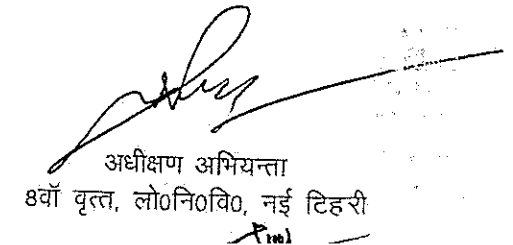 अधीक्षण अभियन्ता
8वॉ वृत्त, लो0नि0वि0, नई टिहरी